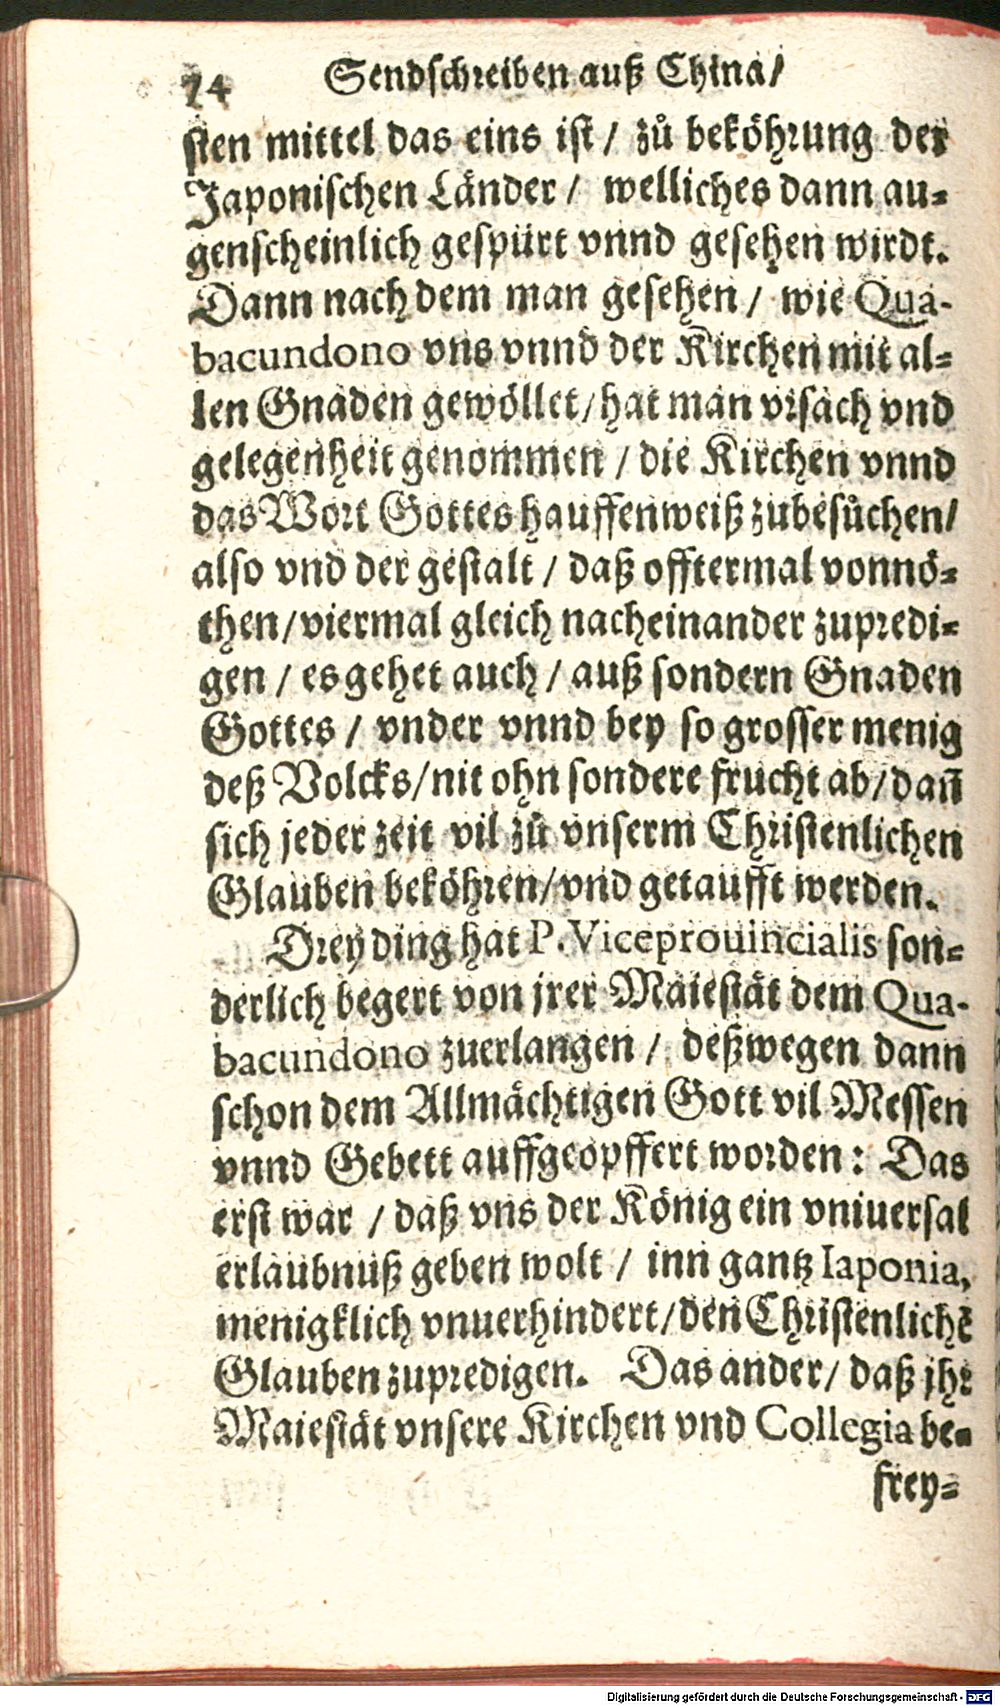 74 Sendschreiben auß China/
sten mittel das eins ist / zů beköhrung der
Japonischen Länder / welliches dann au-
genscheinlich gespürt vnnd gesehen wirdt.
Dann nach dem man gesehen / wie Qua-
bacundono vns vnnd der Kirchen mit al-
len Gnaden gewöllet/hat man vrsach vnd
gelegenheit genommen / die Kirchen vnnd
das Wort Gottes hauffenweiß zubesůchen/
also vnd der gestalt / daß offtermal vonnö-
then/viermal gleich nacheinander zupredi-
gen / es gehet auch / auß sondern Gnaden
Gottes / vnder vnnd bey so grosser menig
deß Volcks/nit ohn sondere frucht ab/dañ
sich jeder zeit vil zů vnserm Christenlichen
Glauben beköhren/vnd getaufft werden.
Drey ding hat P. Viceprouincialis son-
derlich begert von jrer Maiestät dem Qua-
bacundono zuerlangen / deßwegen dann
schon dem Allmächtigen Gott vil Messen
vnnd Gebett auffgeopffert worden: Das
erst war / daß vns der König ein vniuersal
erlaubnuß geben wolt / inn gantz Iaponia,
menigklich vnuerhindert/den Christenlichẽ
Glauben zupredigen. Das ander/ daß jhr
Maiestät vnsere Kirchen vnd Collegia be-
frey-
Digitalisierung gefördert durch die Deutsche Forschungsgemeinschaft - DFG